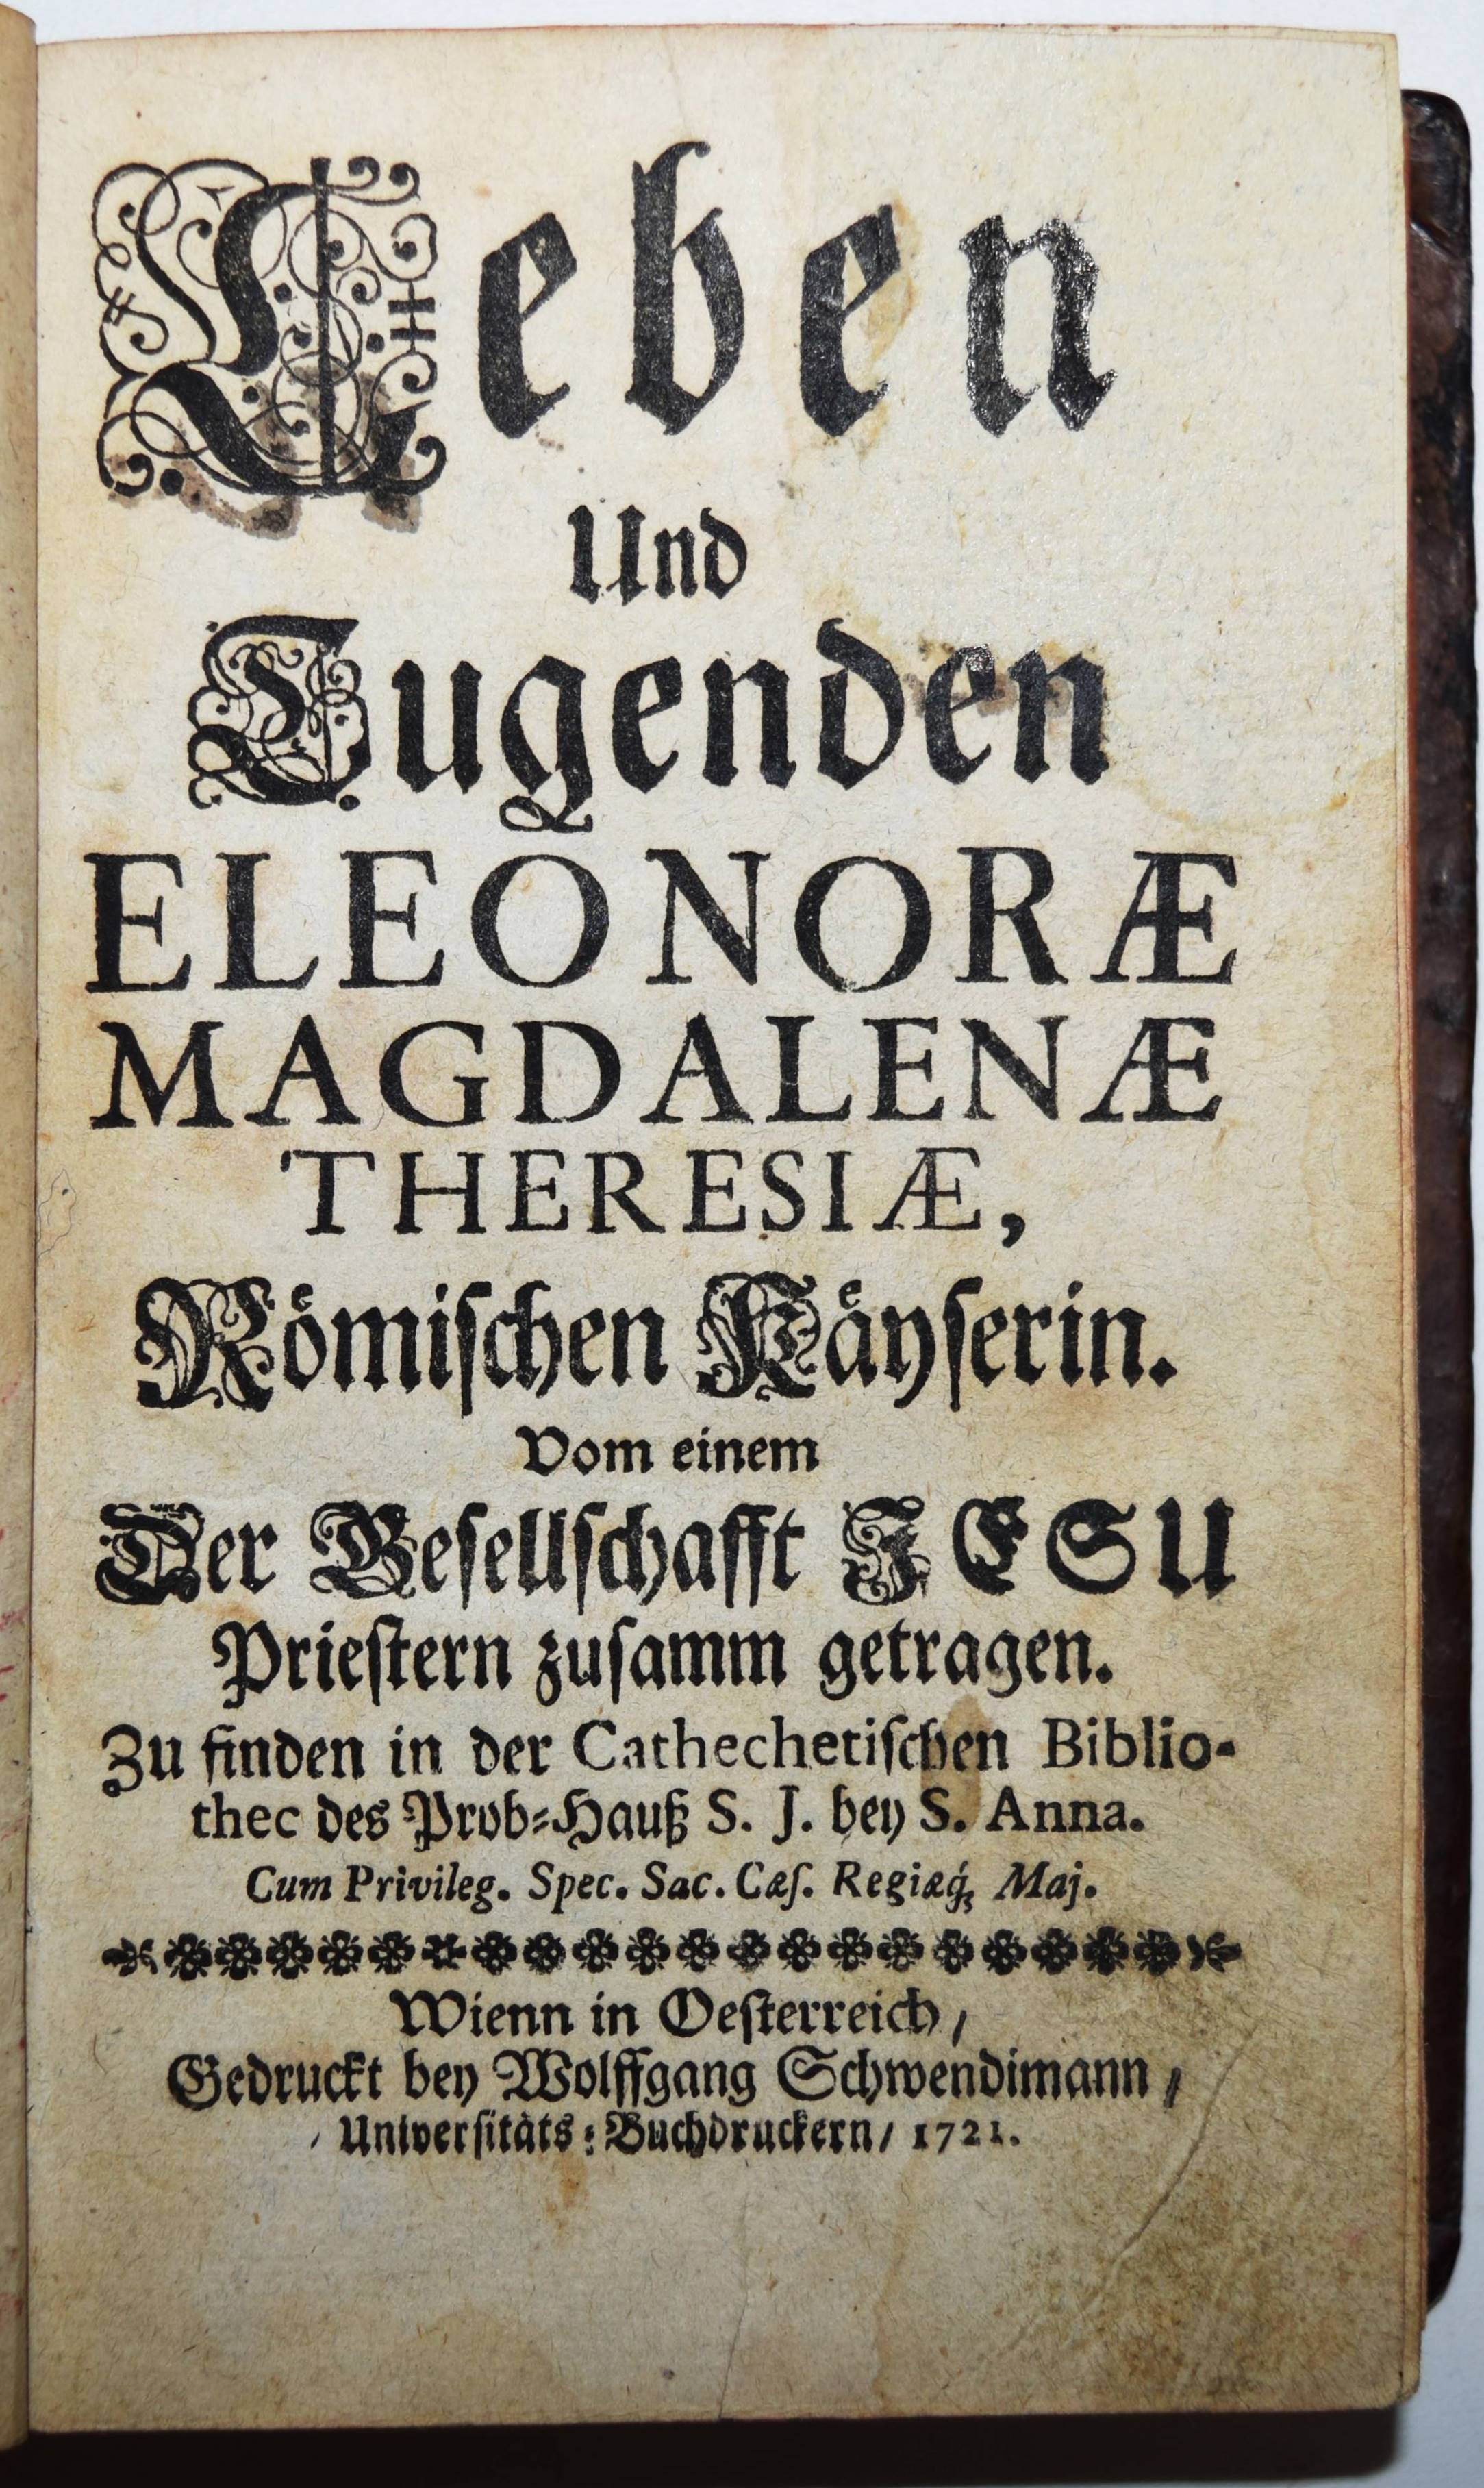 Leben
Und
Tugenden
ELEONORÆ
MAGDALENÆ
THERESIÆ,
Römiſchen Käyſerin.
Vom einem
Der Geſellſchafft JESU
Prieſtern zuſamm getragen.
Zu finden in der Cathechetiſchen Biblio-
thec des Prob-Hauß S. J. bey S. Anna.
Cum Privileg. Spec. Sac. Cæſ. Regiæq́; Maj.
Wienn in Oeſterreich /
Gedruckt bey Wolffgang Schwendimann /
Univerſitäts-Buchdruckern / 1721.